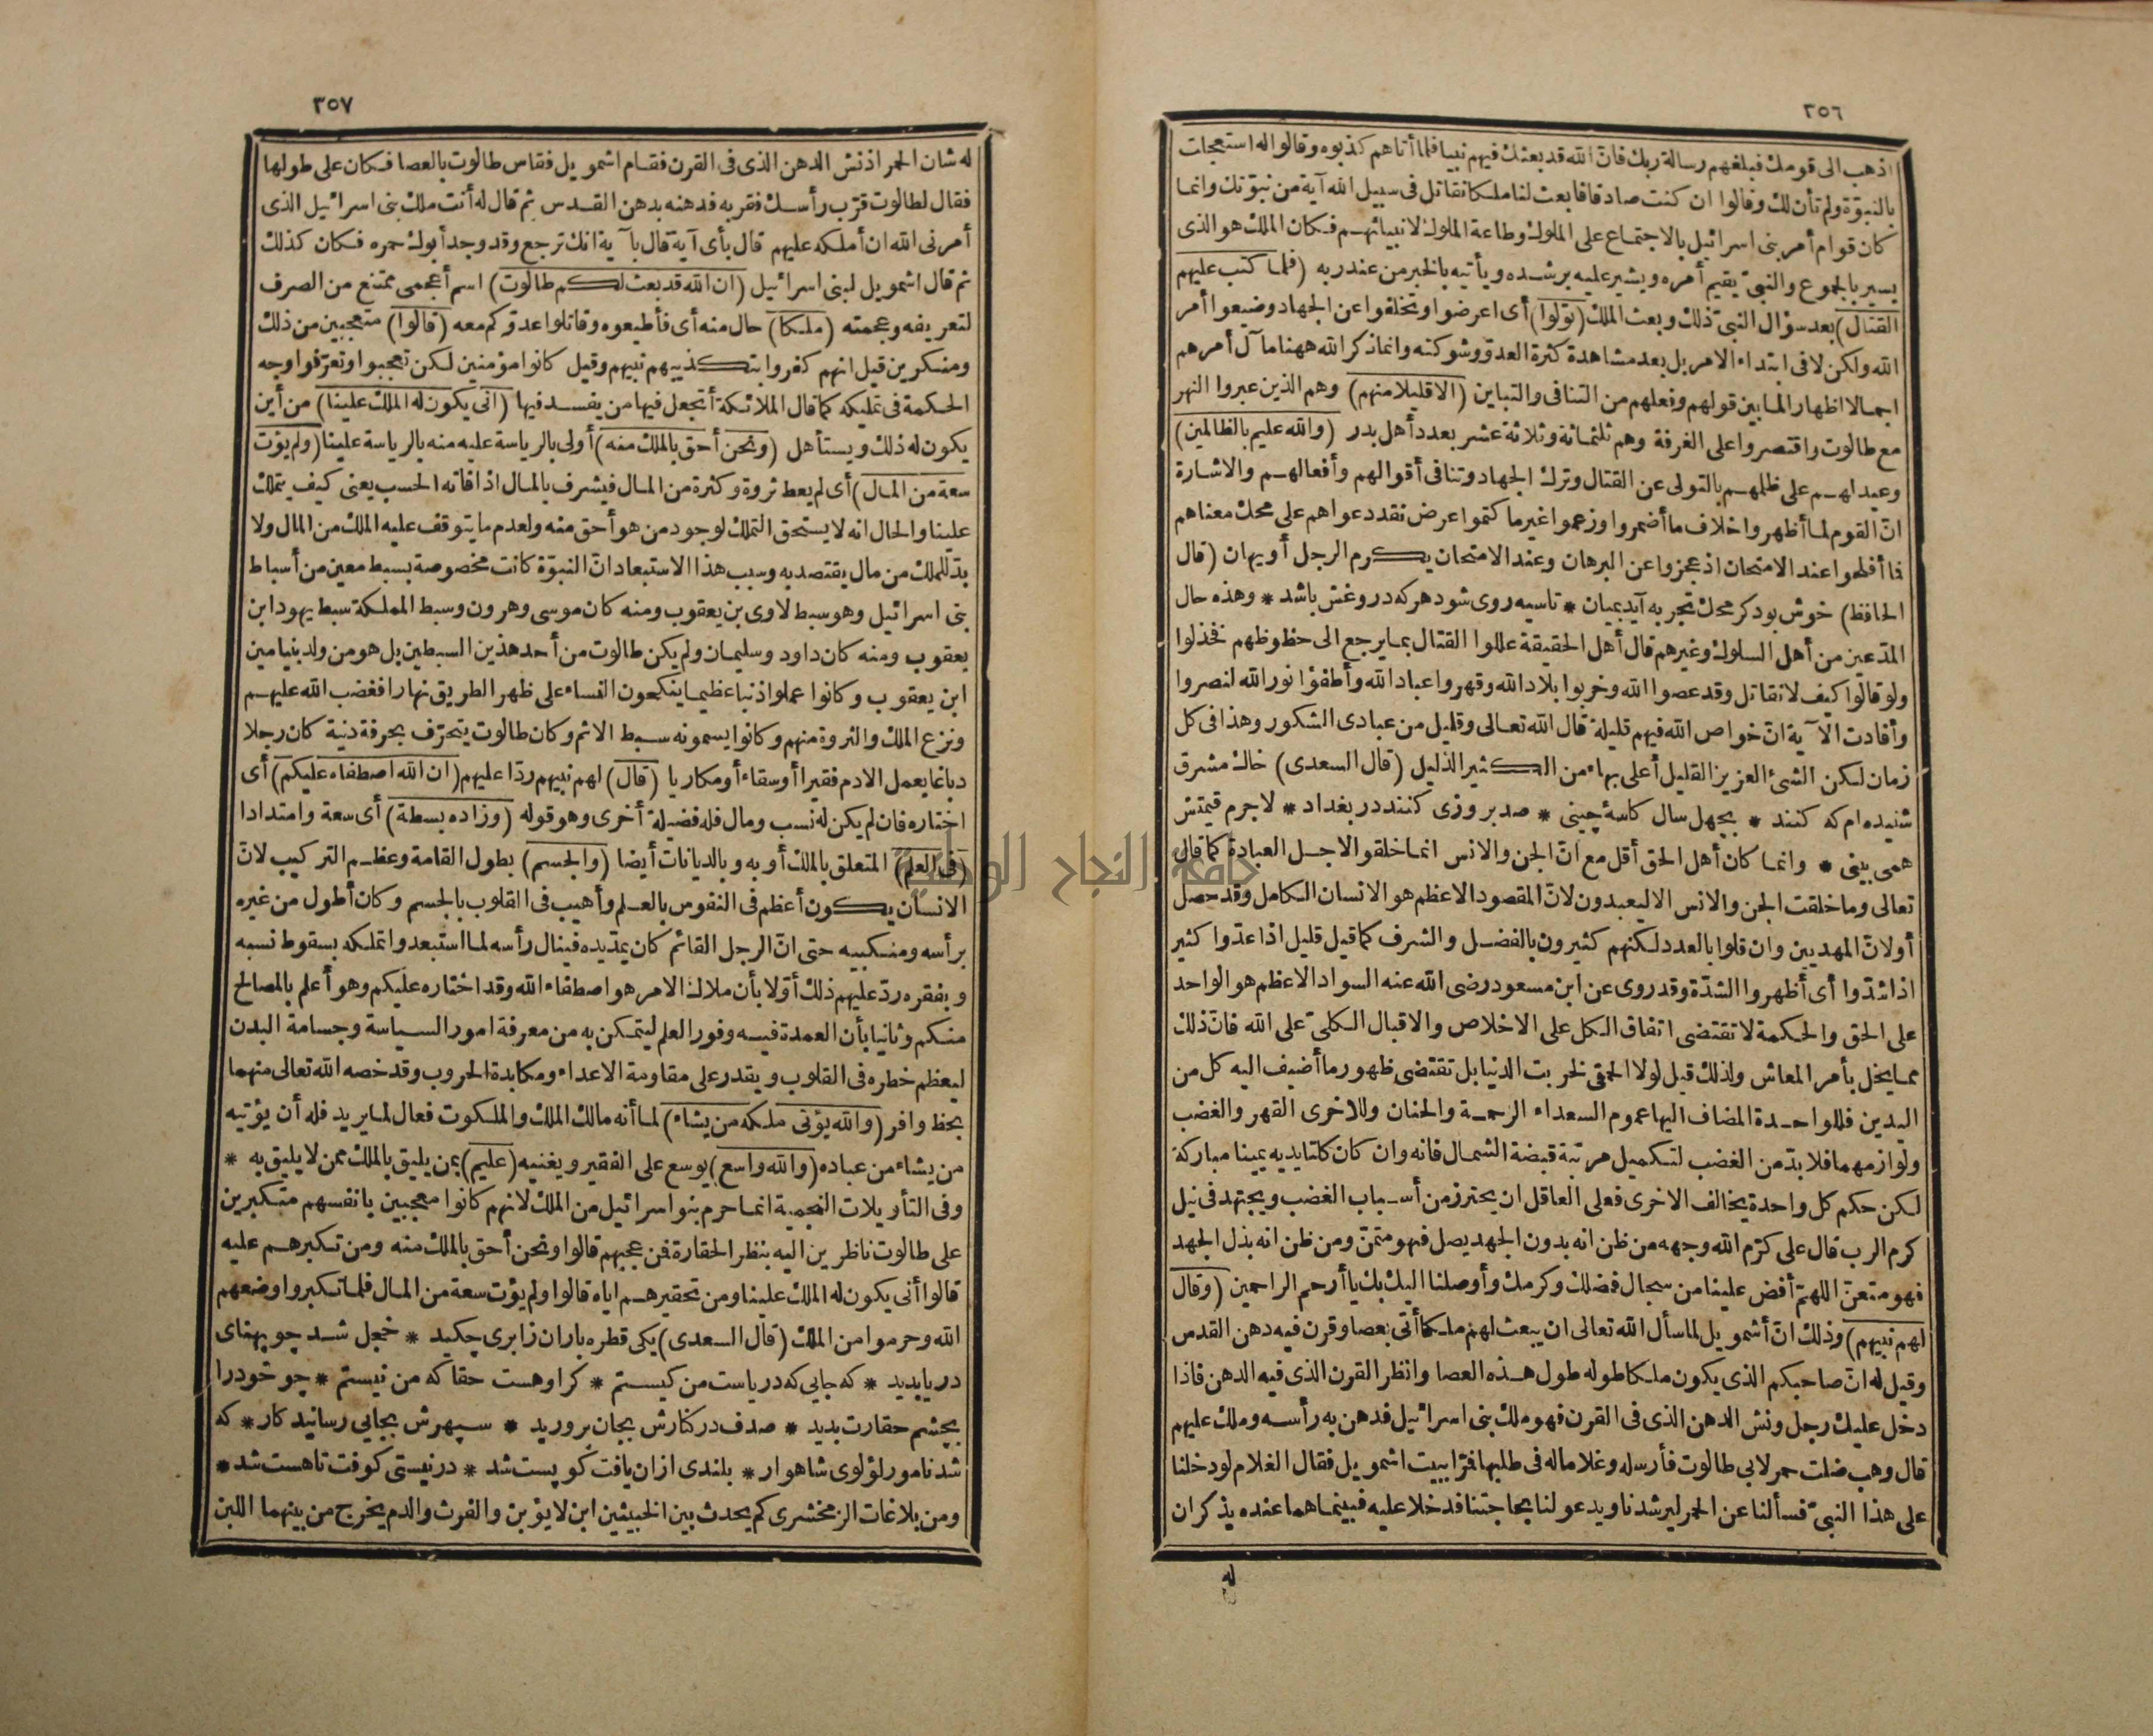 ٣٥٦
اذهب الى قومك فبلغهم رسالة ربك فانّ الله قد بعثك فيهم نبيا فلما أتاهم كذبوه وقالوا له استعجلت
بالنبوّة ولم تأن لك وقالوا ان كنت صادقا فابعث لنا ملكا نقاتل فى سبيل الله آية من نبوّتك وانما
كان قوام أمر بنى اسرائيل بالاجتماع على الملوك وطاعة الملوك لانبيائهم فكان الملك هو الذى
يسير بالجموع والنبىّ يقيم أمره ويشير عليه برشده ويأتيه بالخبر من عند ربه (فلما كتب عليهم
القتال) بعد سؤال النبىّ ذلك وبعث الملك (تولوا) أى اعرضوا وتخلفوا عن الجهاد وضيعوا أمر
الله ولكن لا فى ابتداء الامر بل بعد مشاهدة كثرة العدوّ وشوكته وانما ذكر الله ههنا مآل أمرهم
اجمالا اظهارا لما بين قولهم وفعلهم من التنافى والتباين (الا قليلا منهم) وهم الذين عبروا النهر
مع طالوت واقتصروا على الغرفة وهم ثلثمائة وثلاثة عشر بعدد أهل بدر (والله عليم بالظالمين)
وعيد لهم على ظلمهم بالتولى عن القتال وترك الجهاد وتنافى أقوالهم وأفعالهم والاشارة
انّ القوم لما أظهروا خلاف ما أضمروا وزعموا غير ما كتموا عرض نقد دعواهم على محك معناهم
فما أفلحوا عند الامتحان اذ عجزوا عن البرهان وعند الامتحان يكرم الرجل أو يهان (قال
الحافظ) خوش بود كر محك تجربه آيد بميان * تا سيه روى شود هركه دروغش باشد * وهذه حال
المدّعين من أهل السلوك وغيرهم قال أهل الحقيقة عللوا القتال بما يرجع الى حظوظهم فخذلوا
ولو قالوا كيف لا نقاتل وقد عصوا الله وخربوا بلاد الله وقهروا عباد الله وأطفؤا نور الله لنصروا
وأفادت الآية انّ خواص الله فيهم قليلة قال الله تعالى وقليل من عبادى الشكور وهذا فى كل
زمان لكن الشئ العزيز القليل أعلى بهاء من الكثير الذليل (قال السعدى) خاك مشرق
شنيده ام كه كنند * بچهل سال كاسهٔ چينى * صد بروزى كنند در بغداد * لاجرم قيمتش
همى بينى * وانما كان أهل الحق أقل مع انّ الجن والانس انما خلقوا لاجل العبادة كما قال
تعالى وما خلقت الجن والانس الا ليعبدون لانّ المقصود الاعظم هو الانسان الكامل وقد حصل
أو لانّ المهديين وان قلوا بالعدد لكنهم كثيرون بالفضل والشرف كما قيل قليل اذا عدّوا كثير
اذا شدّوا أى أظهروا الشدّة وقد روى عن ابن مسعود رضى الله عنه السواد الاعظم هو الواحد
على الحق والحكمة لا تقتضى اتفاق الكل على الاخلاص والاقبال الكلىّ على الله فانّ ذلك
مما يخل بأمر المعاش ولذلك قيل لولا الحمقى لخربت الدنيا بل تقتضى ظهور ما أضيف اليه كل من
اليدين فللواحدة المضاف اليها عموم السعداء الرحمة والحنان وللاخرى القهر والغضب
ولوازمهما فلا بدّ من الغضب لتكميل مرتبة قبضة الشمال فانه وان كان كلتا يديه يمينا مباركة
لكن حكم كل واحدة يخالف الاخرى فعلى العاقل ان يحترز من أسباب الغضب ويجتهد فى نيل
كرم الرب قال على كرّم الله وجهه من ظن انه بدون الجهد يصل فهو متمنّ ومن ظن انه ببذل الجهد
فهو متعنّ اللهمّ أفض علينا من سجال فضلك وكرمك وأوصلنا اليك بك يا أرحم الراحمين (وقال
لهم نبيهم) وذلك انّ أشمويل لما سأل الله تعالى ان يبعث لهم ملكا أتى بعصا وقرن فيه دهن القدس
وقيل له انّ صاحبكم الذى يكون ملكا طوله طول هذه العصا وانظر القرن الذى فيه الدهن فاذا
دخل عليك رجل ونش الدهن الذى فى القرن فهو ملك بنى اسرائيل فدهن به رأسه وملك عليهم
قال وهب ضلت حمر لابى طالوت فأرسله وغلاما له فى طلبها فمرّا ببيت اشمويل فقال الغلام لو دخلنا
على هذا النبىّ فسألنا عن الحمر ليرشدنا ويدعو لنا بحاجتنا فدخلا عليه فبينما هما عنده يذكران
له
٣٥٧
له شان الحمر اذ نش الدهن الذى فى القرن فقام اشمويل فقاس طالوت بالعصا فكان على طولها
فقال لطالوت قرّب رأسك فقربه فدهنه بدهن القدس ثم قال له أنت ملك بنى اسرائيل الذى
أمرنى الله ان أملكه عليهم قال بأى آية قال بآية انك ترجع وقد وجد أبوك حمره فكان كذلك
ثم قال اشمويل لبنى اسرائيل (ان الله قد بعث لكم طالوت) اسم أعجمى ممتنع من الصرف
لتعريفه وعجمته (ملكا) حال منه أى فأطيعوه وقاتلوا عدوّكم معه (قالوا) متعجبين من ذلك
ومنكرين قيل انهم كفروا بتكذيبهم نبيهم وقيل كانوا مؤمنين لكن تعجبوا وتعرّفوا وجه
الحكمة فى تمليكه كما قال الملائكة أتجعل فيها من يفسد فيها (انى يكون له الملك علينا) من أين
يكون له ذلك ويستأهل (ونحن أحق بالملك منه) أولى بالرياسة عليه منه بالرياسة علينا (ولم يؤت
سعة من المال) أى لم يعط ثروة وكثرة من المال فيشرف بالمال اذا فاته الحسب يعنى كيف يتملك
علينا والحال انه لا يستحق التملك لوجود من هو أحق منه ولعدم ما يتوقف عليه الملك من المال ولا
بدّ للملك من مال يقتصد به وسبب هذا الاستبعاد انّ النبوّة كانت مخصوصة بسبط معين من أسباط
بنى اسرائيل وهو سبط لاوى بن يعقوب ومنه كان موسى وهرون وسبط المملكة سبط يهودا بن
يعقوب ومنه كان داود وسليمان ولم يكن طالوت من أحد هذين السبطين بل هو من ولد بنيامين
ابن يعقوب وكانوا عملوا ذنبا عظيما ينكحون النساء على ظهر الطريق نهارا فغضب الله عليهم
ونزع الملك والنبوة منهم وكانوا يسمونه سبط الاثم وكان طالوت يتحرّف بحرفة دنية كان رجلا
دباغا يعمل الادم فقيرا أو سقاء أو مكاريا (قال) لهم نبيهم ردّا عليهم (ان الله اصطفاه عليكم) أى
اختاره فان لم يكن له نسب ومال فله فضيلة أخرى وهو قوله (وزاده بسطة) أى سعة وامتدادا
(فى العلم) المتعلق بالملك أو به وبالديانات أيضا (والجسم) بطول القامة وعظم التركيب لانّ
الانسان يكون أعظم فى النفوس بالعلم وأهيب فى القلوب بالجسم وكان أطول من غيره
برأسه ومنكبيه حتى انّ الرجل القائم كان يمدّ يده فينال رأسه لما استبعدوا تملكه بسقوط نسبه
وبفقره ردّ عليهم ذلك أوّلا بأن ملاك الامر هو اصطفاء الله وقد اختاره عليكم وهو أعلم بالمصالح
منكم وثانيا بأن العمدة فيه وفور العلم ليتمكن به من معرفة امور السياسة وجسامة البدن
ليعظم خطره فى القلوب ويقدر على مقاومة الاعداء ومكابدة الحروب وقد خصه الله تعالى منهما
بحظ وافر (والله يؤتى ملكه من يشاء) لما أنه مالك الملك والملكوت فعال لما يريد فله أن يؤتيه
من يشاء من عباده (والله واسع) يوسع على الفقير ويغنيه (عليم) بمن يليق بالملك ممن لا يليق به *
وفى التأويلات النجمية انما حرم بنو اسرائيل من الملك لانهم كانوا معجبين بانفسهم متكبرين
على طالوت ناظرين اليه بنظر الحقارة فمن عجبهم قالوا ونحن أحق بالملك منه ومن تكبرهم عليه
قالوا أنى يكون له الملك علينا ومن تحقيرهم اياه قالوا ولم يؤت سعة من المال فلما تكبروا وضعهم
الله وحرموا من الملك (قال السعدى) يكى قطره باران زابرى چكيد * خجل شد چو پهناى
دريا بديد * كه جايى كه درياست من كيستم * كر او هست حقا كه من نيستم * چو خود را
بچشم حقارت بديد * صدف در كنارش بجان پروريد * سپهرش بجايى رسانيد كار * كه
شد نامور لؤلوى شاهوار * بلندى ازان يافت كو پست شد * در نيستى كوفت تا هست شد *
ومن بلاغات الزمخشرى كم يحدث بين الخبيثين ابن لا يؤبن والفرث والدم يخرج من بينهما اللبن
جامعة النجاح الوطنية